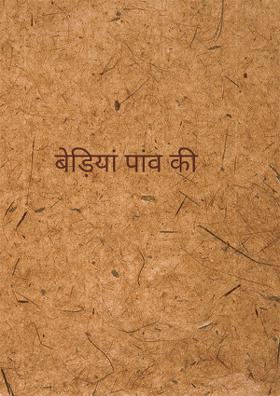 बेड़ियां पांव की